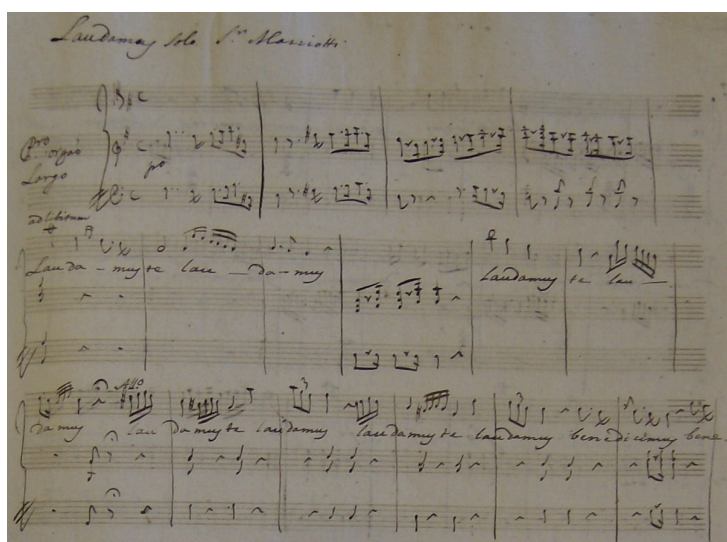 Laudamus solo Sr. Mariotti
Pro
orgao
Largo
po
ad libitum
Lauda - mus te lau - da - mus
Laudamus te lau -
damus lau damus te laudamus laudamus te laudamus benedicimus bene
Allo